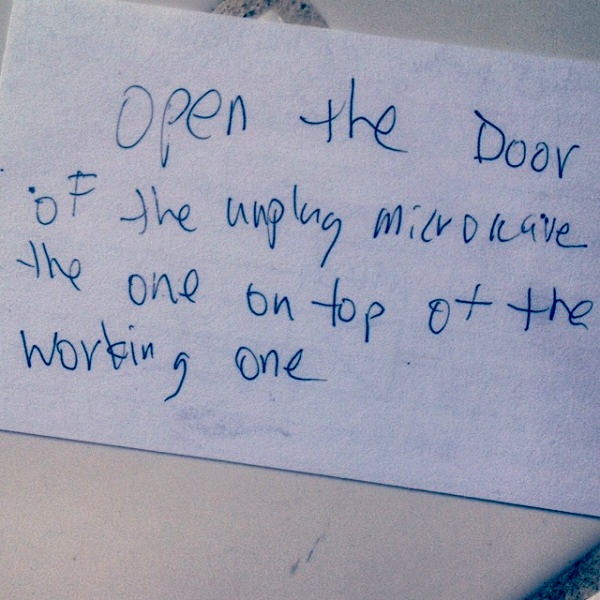 Open the Door
of the unplug microwave
the one on top of the
working one